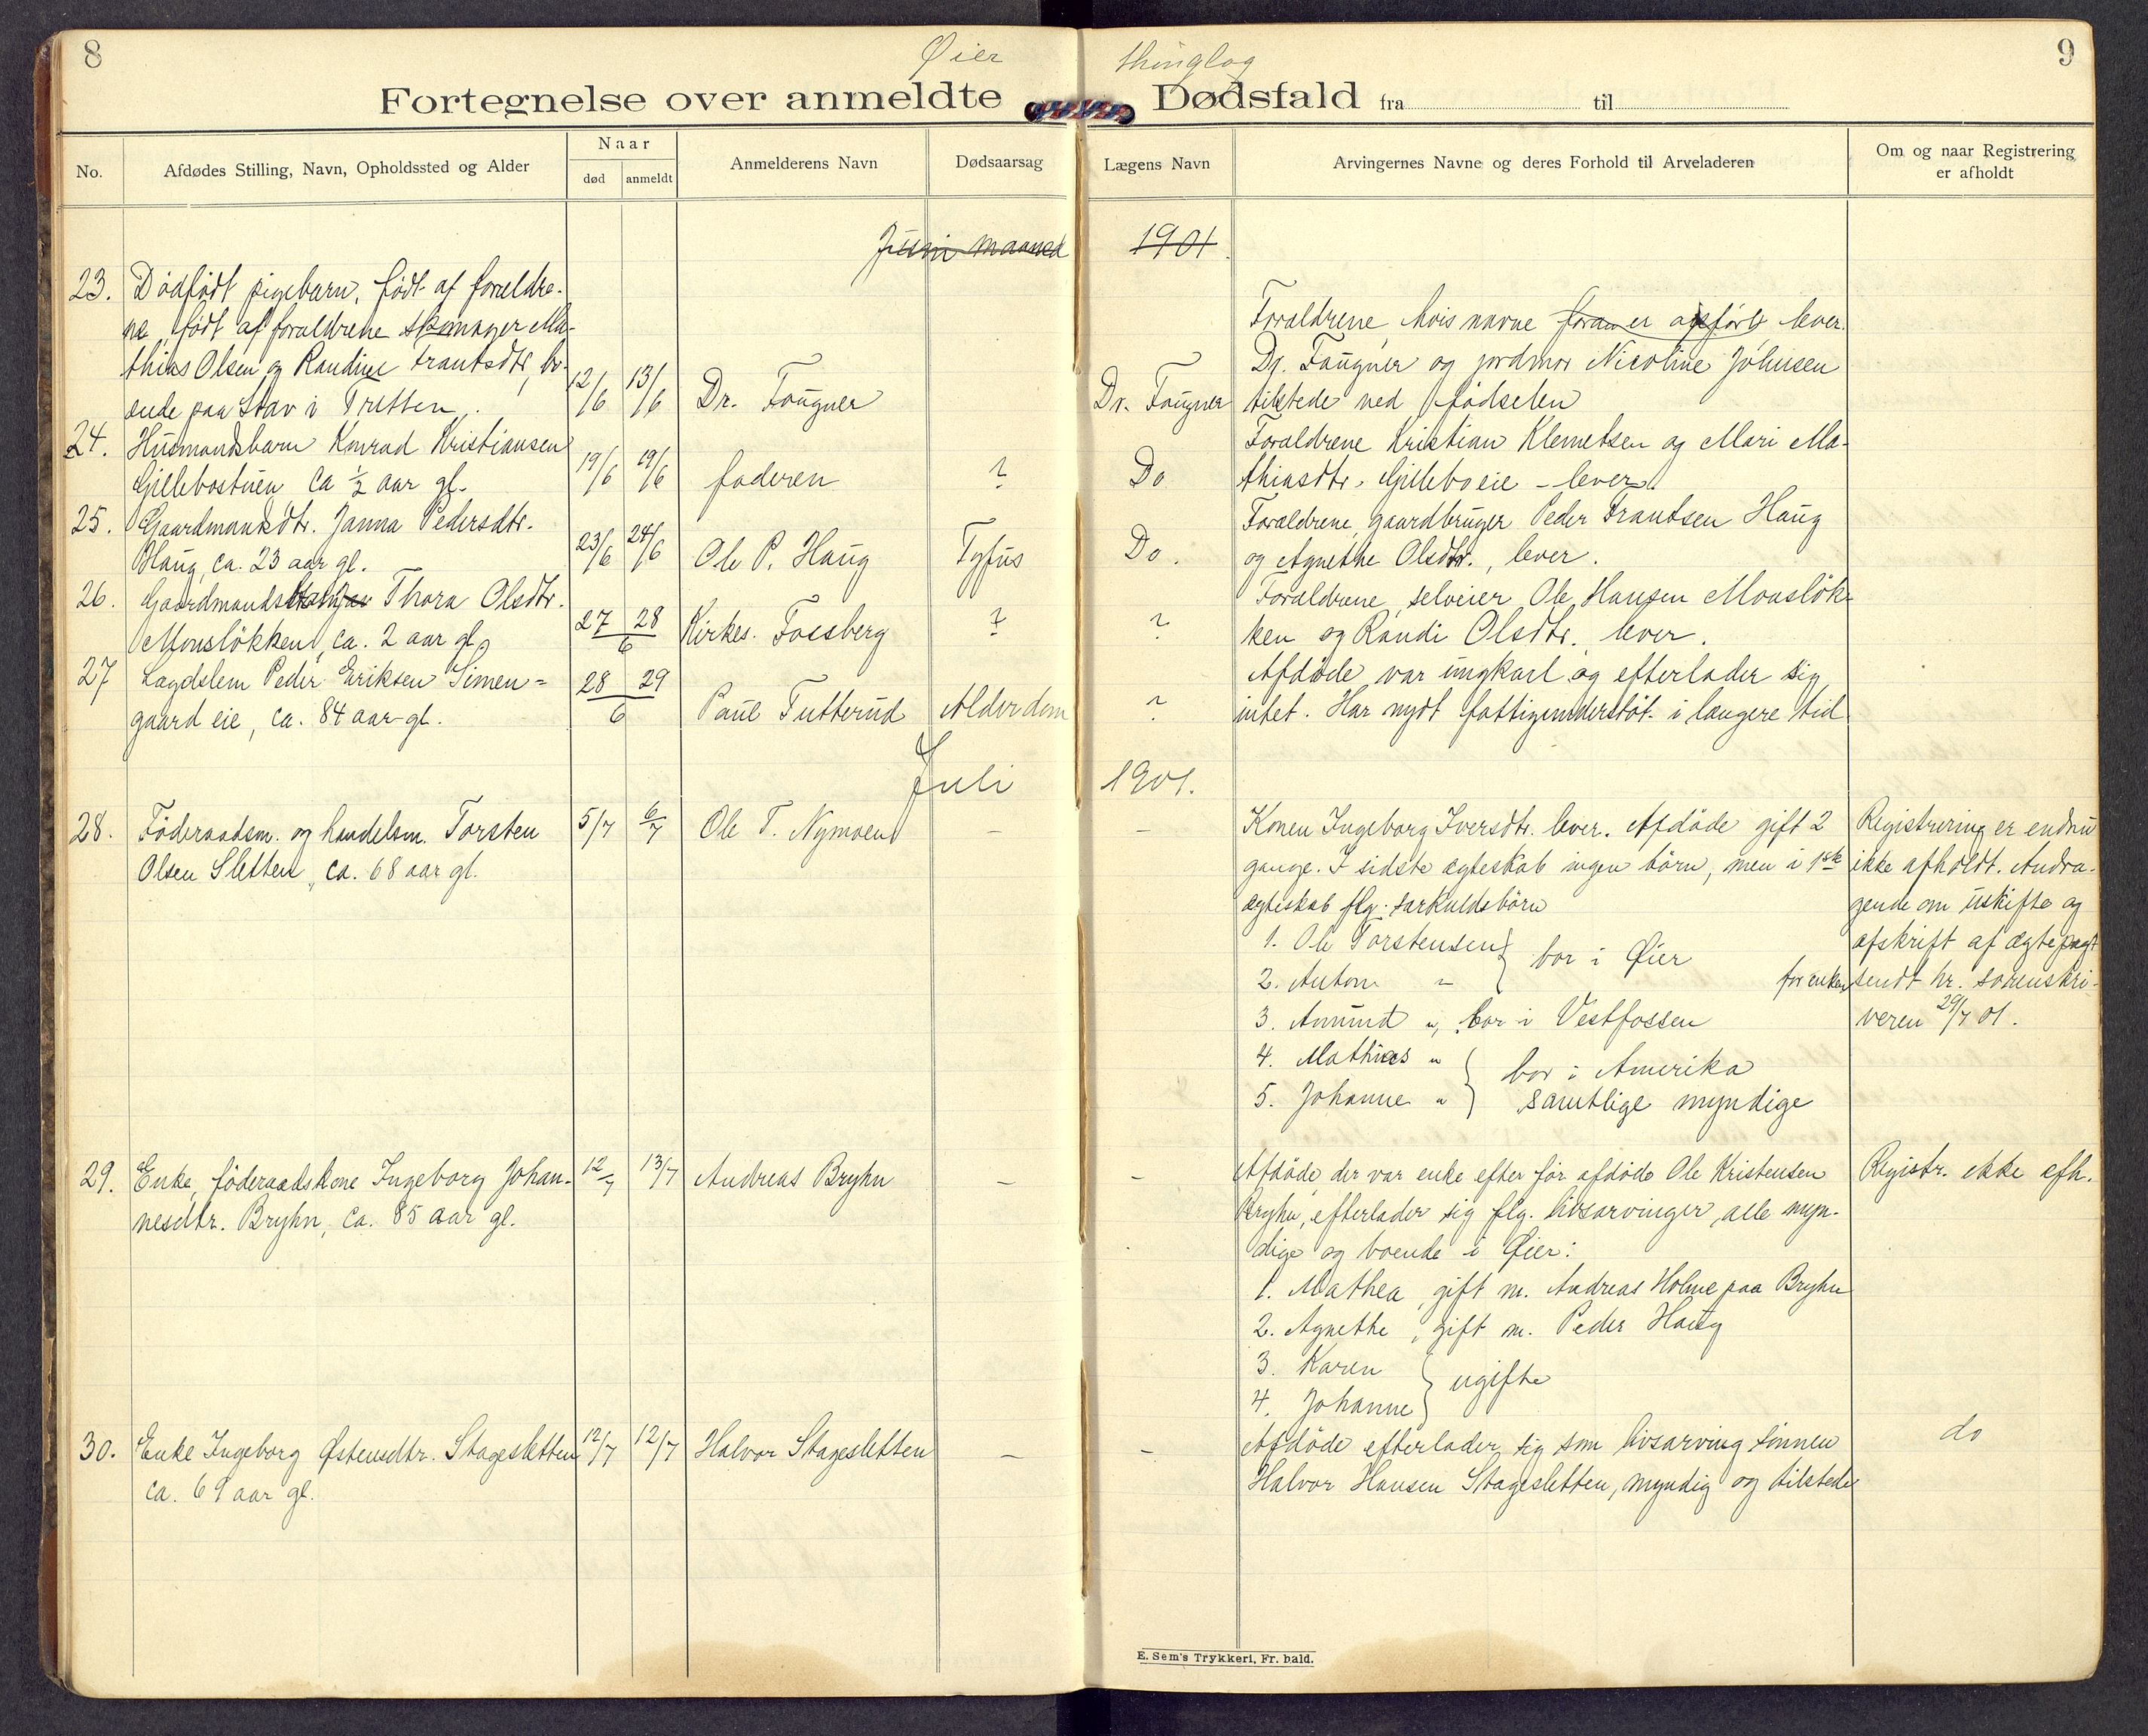 8
Øier
thinglag
9
Fortegnelse over anmeldte Dødsfald fra til
No.
Afdødes Stilling, Navn, Opholdssted og Alder
Naar
død
anmeldt
Anmelderens Navn
Dødsaarsag
Lægens Navn
Arvingernes Navne og deres Forhold til Arveladeren
Om og naar Registrering
er afholdt
Juni maaned 1901
23. Dødfödt pigebarn, födt af forældre-
ne, födt af forældrene skomager Ma-
thias Olsen og Randine Frantsdtr, bo-
ende paa Stav i Tretten.
12/6 13/6 Dr. Fougner
Dr. Fougner
Forældrene, hvis navne foran er opført lever.
Dr. Fougner og jordmor Nicoline Johnsen
tilstede ved fødselen
24. Husmandsbarn Konrad Kristiansen
Gillebostuen ca ½ aar gl.
19/6 19/6 faderen ?
Do
Forældrene Kristian Klemetsen og Mari Ma-
thiasdtr. Gilleboeie - lever.
25. Gaardmandsdtr. Janna Pedersdtr.
Haug, ca. 23 aar gl.
23/6 24/6 Ole P. Haug Tyfus
Do.
Forældrene, gaardbruger Peder Frantsen Haug
og Agnethe Olsdtr., lever.
26. Gaardmands Thora Olsdtr.
Monsløkken, ca. 2 aar gl.
27 28
6
Kirkes. Fossberg ?
?
Forældrene, selveier Ole Hansen Monsløk-
ken og Randi Olsdtr. lever.
27 Lægdslem Peder Eriksen Simen-
gaard eie, ca. 84 aar gl.
28 29
6
Paul Tutterud Alderdom
?
Afdøde var ungkarl og efterlader sig
intet. Har nydt fattigunderstøt. i længere tid
Juli 1901.
28. Föderaadsm. og handelsm. Torsten
Olsen Sletten, ca. 68 aar gl.
5/7 6/7 Ole T. Nymoen –
–
Konen Ingeborg Iversdtr. lever. Afdøde gift 2
gange. I sidste ægteskab ingen børn, men i 1ste
ægteskab flg. særkuldsbørn
1. Ole Torstensen } bor i Øier
2. Anton "
3. Amund ", bor i Vestfossen
4. Mathias " } bor i Amerika
5. Johanne " } samtlige myndige
Registrering er endnu
ikke afholdt. Andra-
gende om uskifte og
afskrift af ægtepagt
for enken sendt hr. sorenskri-
veren 29/7 01.
29. Enke, föderaadskone Ingeborg Johan-
nesdtr. Bryhn, ca. 85 aar gl.
12/7 13/7 Andreas Bryhn –
–
Afdøde, der var enke efter før afdøde Ole Kristensen
Bryhn, efterlader sig flg. livsarvinger, alle myn-
dige og boende i Øier:
1. Mathea, gift m. Andreas Holme paa Bryhn
2. Agnethe, gift m. Peder Haug
3. Karen } ugifte
4. Johanne
Registr. ikke afh.
30. Enke Ingeborg Østensdtr. Stagesletten
ca. 69 aar gl.
12/7 12/7 Halvor Stagesletten –
–
Afdøde efterlader sig som livsarving sønnen
Halvor Hansen Stagesletten, myndig og tilstede
do
E. Sem's Trykkeri, Fr. hald.